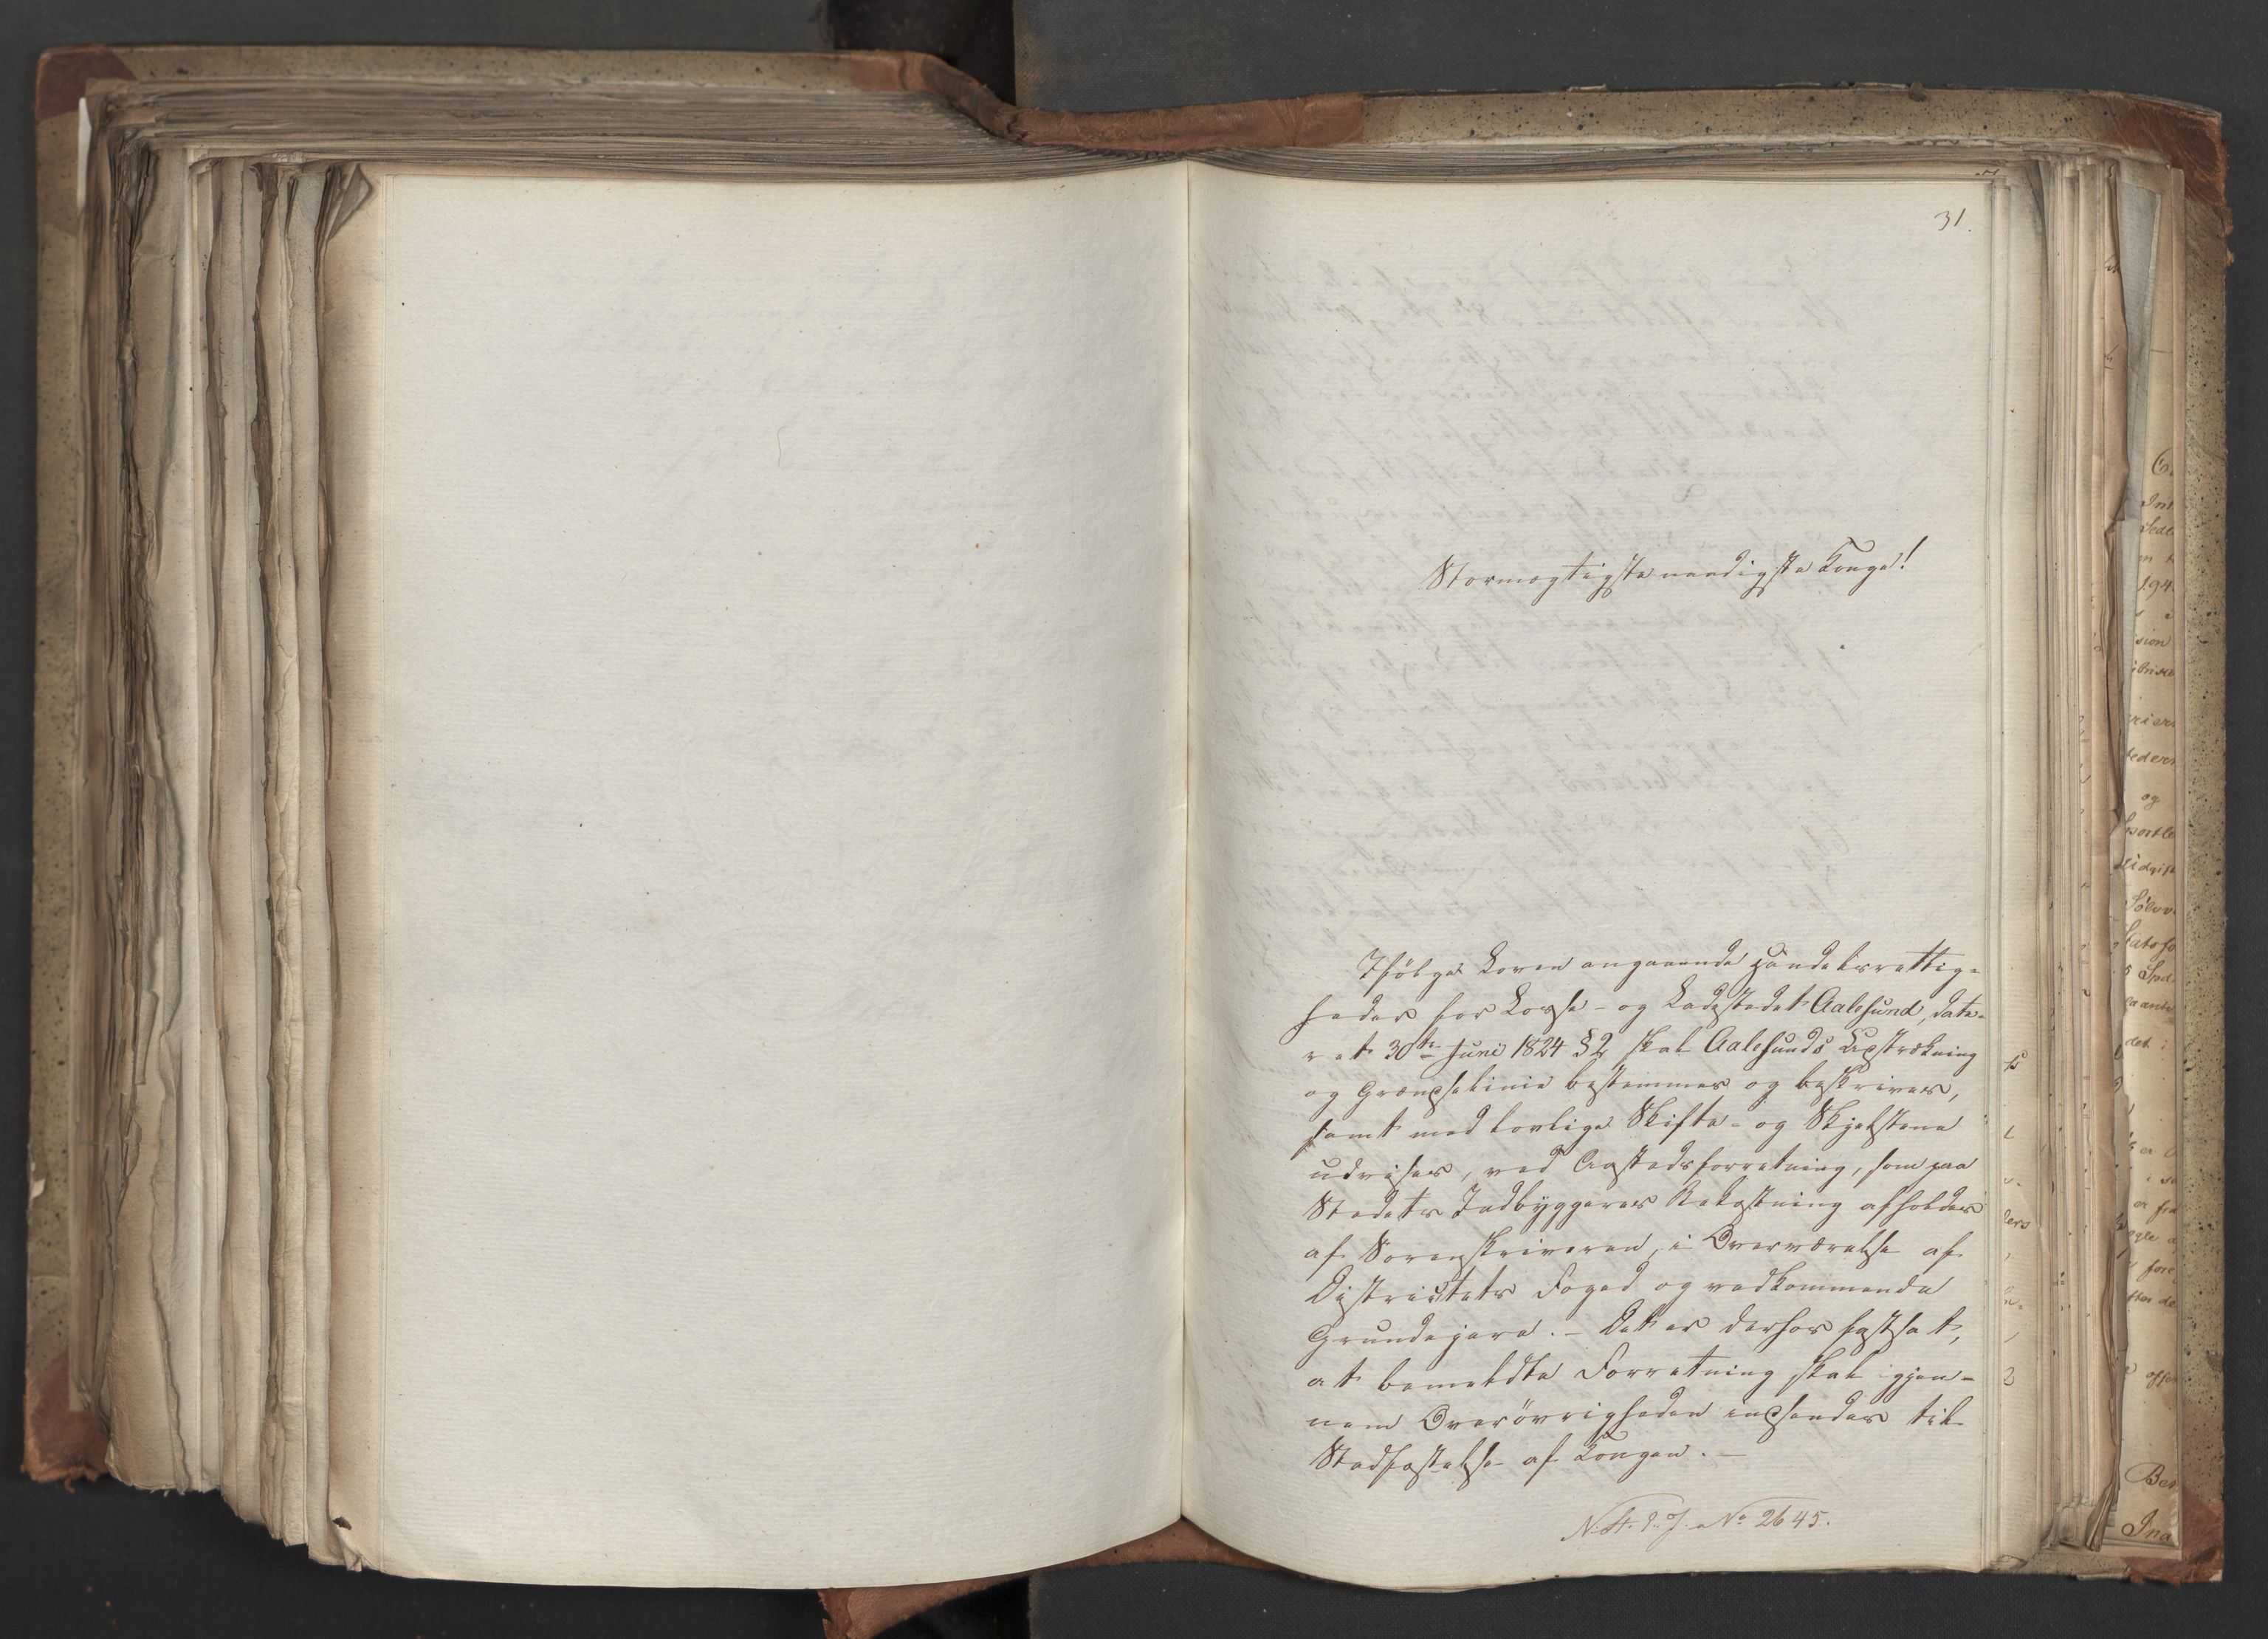 31.
Stormægtigste naadigste Konge!
Ifölge Loven angaaende Handelsrettig-
heder for Losse- og Ladestedet Aalesund, date-
ret 30te Juni 1824 § 2 skal Aalesunds Udstrækning
og Grændselinie bestemmes og beskrives,
samt med lovlige Skifte- og Skjelstene
udvises, ved Aastedsforretning, som paa
Stedets Indbyggeres Bekostning afholdes
af Sorenskriveren, i Overværelse af
Districtets Foged og vedkommende
Grundejere. - Det er derhos fastsat,
at bemeldte Forretning skal igjen-
nem Överövrigheden indsendes til
Stadfæstelse af Kongen. -
No 2645.